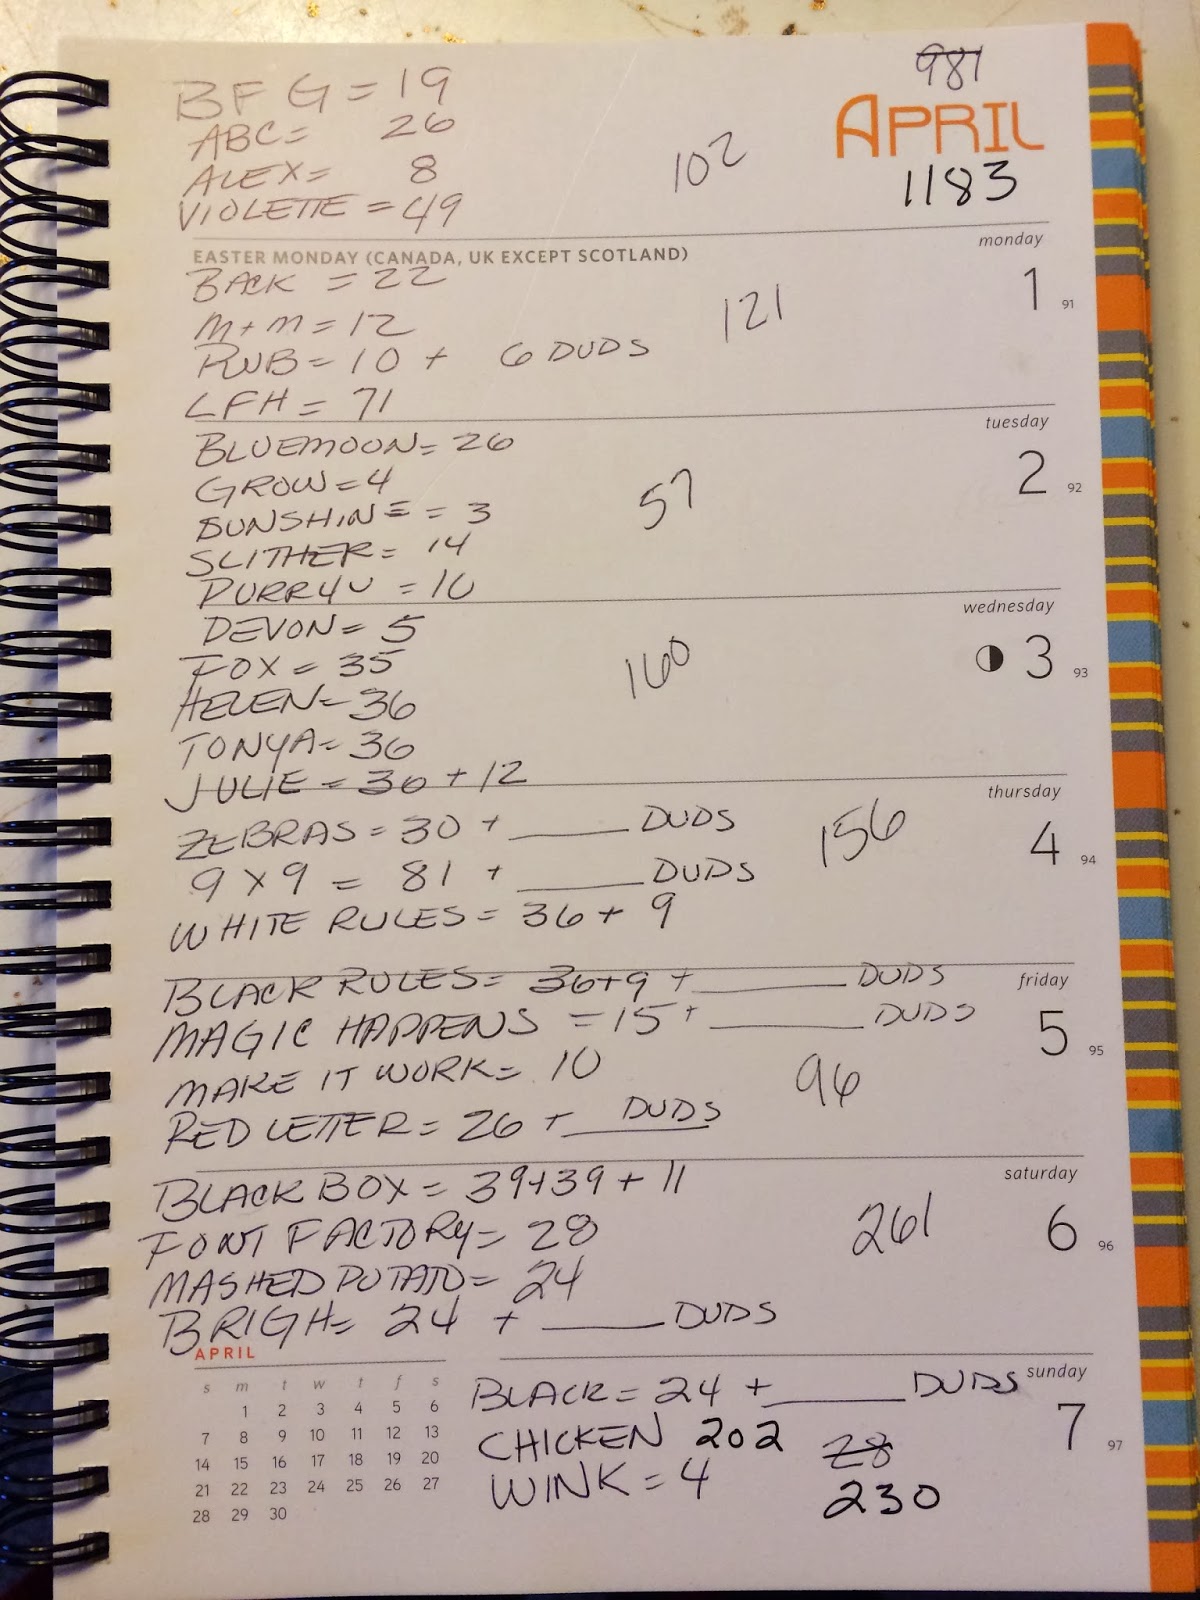 981
BFG = 19
APRIL
ABC = 26
102
ALEX = 8
1183
VIOLETTE = 49
monday
EASTER MONDAY (CANADA, UK EXCEPT SCOTLAND)
BACK = 22
1 91
M+M = 12
121
RWB = 10 + 6 DUDS
LFH = 71
tuesday
BLUEMOON = 26
GROW = 4
2 92
SUNSHINE = 3
57
SLITHER = 14
PURR4U = 10
wednesday
DEVON = 5
FOX = 35
160
3 93
HELEN = 36
TONYA = 36
JULIE = 36 + 12
thursday
ZEBRAS = 30 + ____ DUDS
156
4 94
9 X 9 = 81 + ____ DUDS
WHITE RULES = 36 + 9
BLACK RULES = 36+9 + ____ DUDS
friday
MAGIC HAPPENS = 15 + ____ DUDS
5 95
MAKE IT WORK = 10
96
RED LETTER = 26 + DUDS
BLACK BOX = 39+39 + 11
saturday
FONT FACTORY = 28
261
6 96
MASHED POTATO = 24
BRIGH = 24 + ____ DUDS
APRIL
s m t w t f s
1 2 3 4 5 6
7 8 9 10 11 12 13
14 15 16 17 18 19 20
21 22 23 24 25 26 27
28 29 30
sunday
BLACK = 24 + ____ DUDS
7 97
CHICKEN 202
28
WINK = 4
230